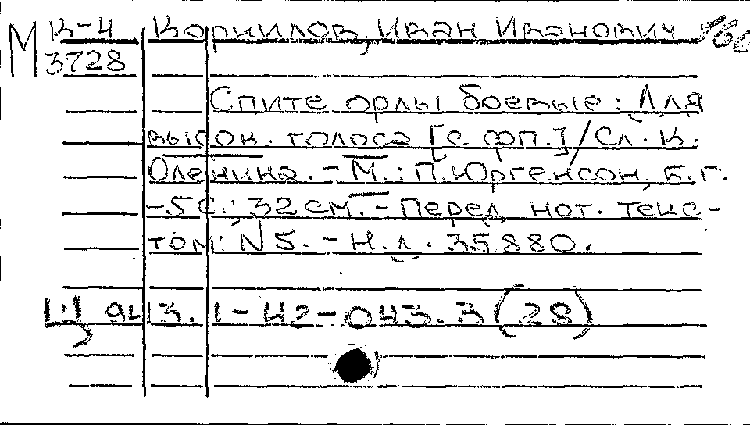 М К-4 Корнилов, Иван Иванович
3728
Спите орлы боевые: Для
высок. голоса [с. фп.] / Сл. К.
Оленина. - М.: П. Юргенсон, б. г.
- 5 с.; 32 см. - Перед нот. текс-
том: N 5. - Н. д. 35880.
Ц 943.1-42-043.3 (28)